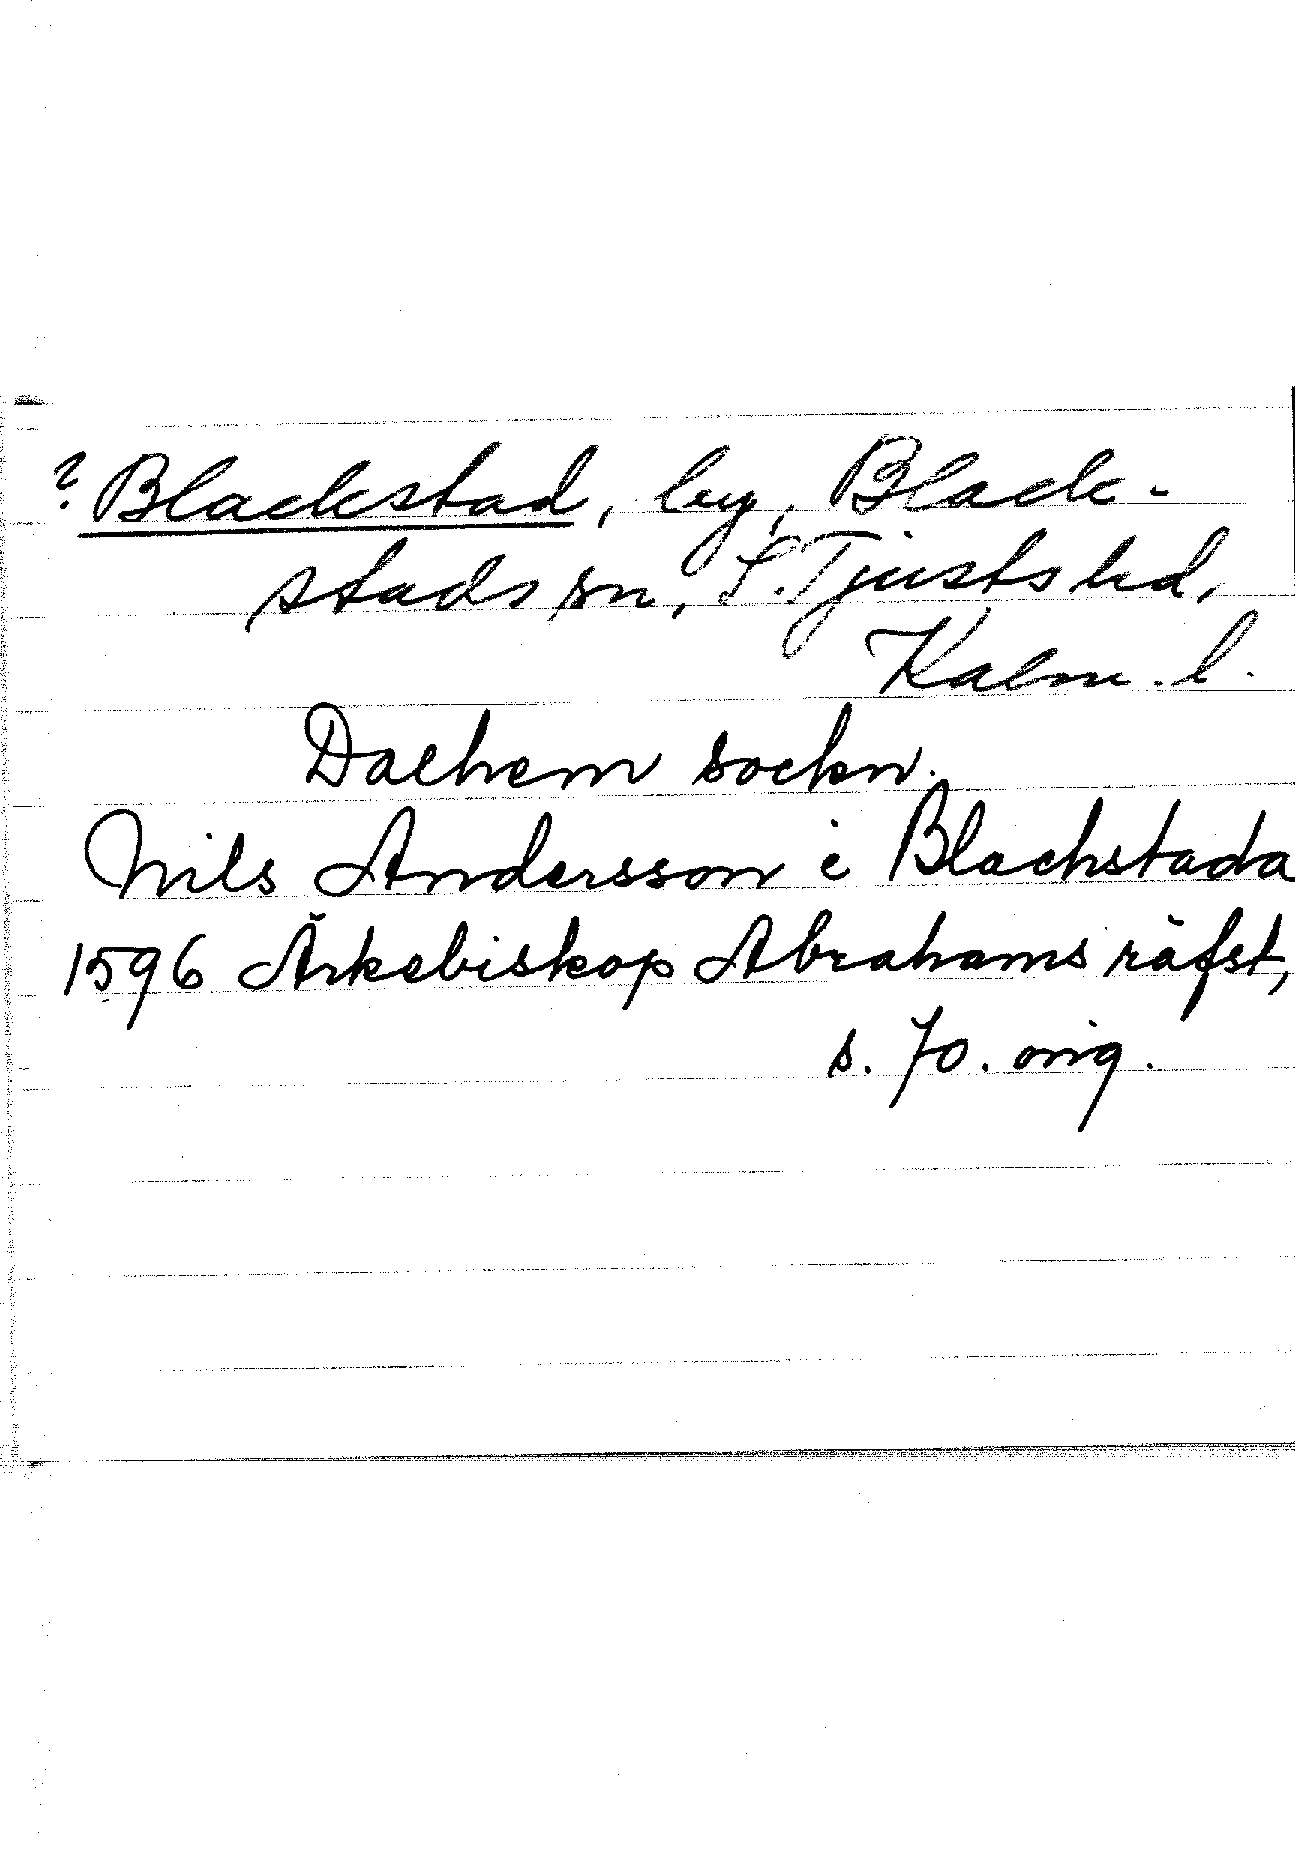 ? Blackstad, by, Black-
stads sn, S. Tjusts hd,
Kalm. l.
Dalhem sockn.
Nils Andersson i Blachstada
1596 Ärkebiskop Abrahams räfst,
s. 70. orig.